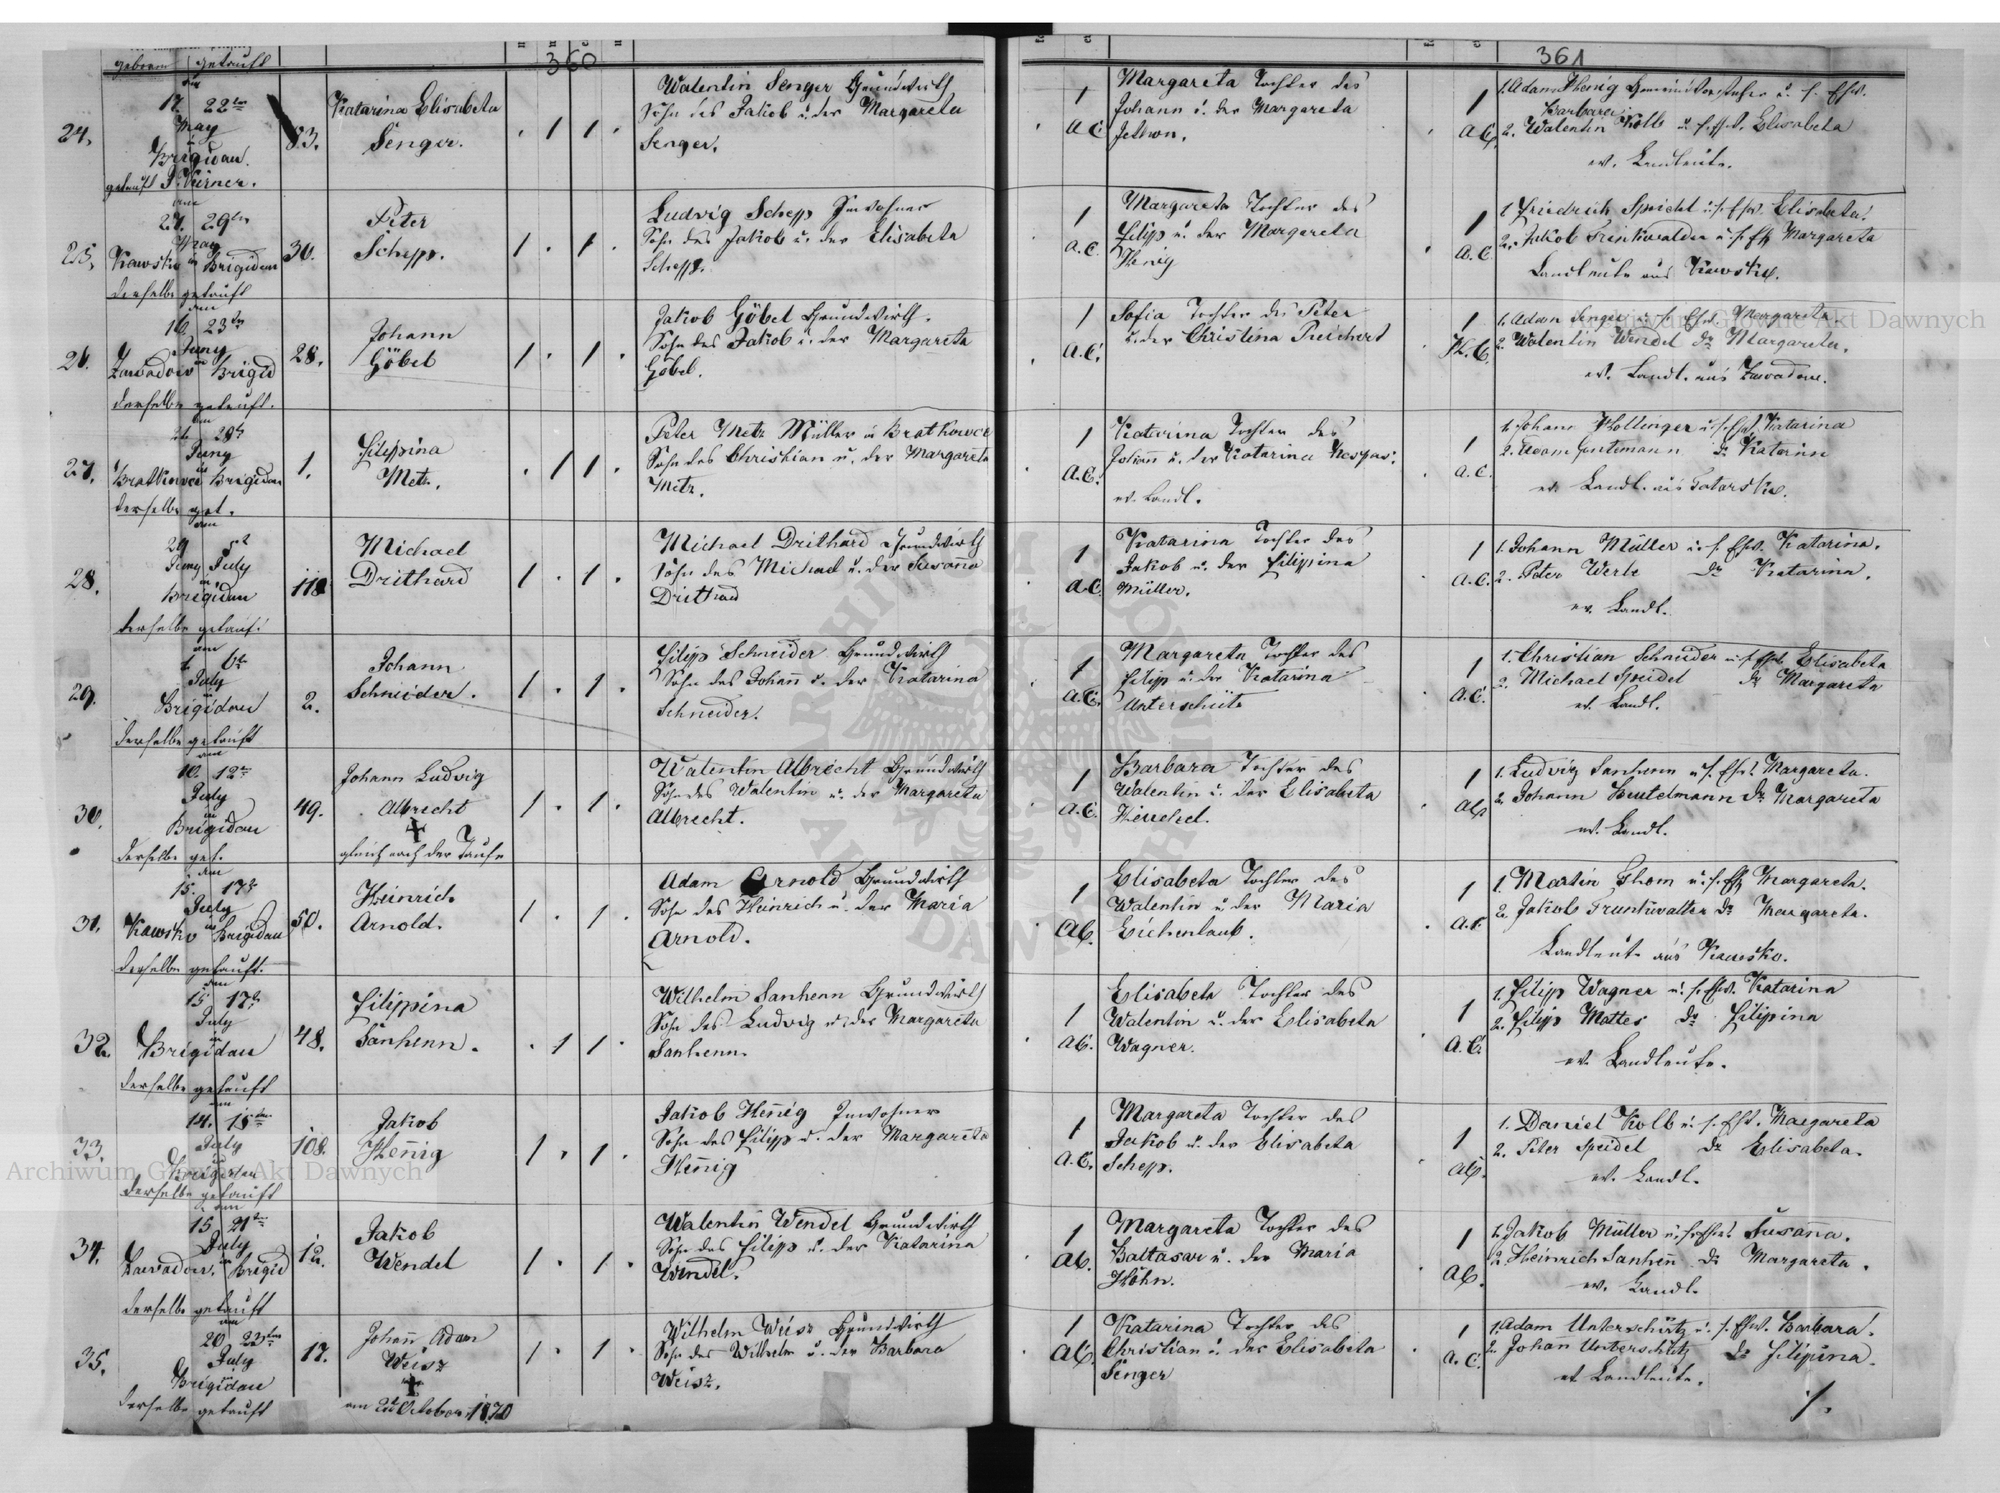 360
geboren getauft
24.
17. 22ten
May
Brigidau.
getauft J. Kirner.
83.
Katarina Elisabeta
Senger.
. 1 1 .
Walentin Senger Grundwirth
Sohn des Jakob u. der Margareta
Senger.
25.
27. 29ten
May
Kawsko in Brigidau
derselbe getauft
30.
Peter
Schepp.
1 . 1 .
Ludwig Schepp Inwohner
Sohn des Jakob u. der Elisabeta
Schepp.
26.
16. 23ten
Juny
Zawadow in Brigid
derselbe getauft.
28.
Johann
Göbel
1 . 1 .
Jakob Göbel Grundwirth.
Sohn des Jakob u. der Margareta
Göbel.
27.
26. 29t
Juny
Bratkowce in Brigidau
derselbe get.
1.
Filippina
Metz.
. 1 1 .
Peter Metz Müller in Bratkowce
Sohn des Christian u. der Margareta
Metz.
28.
29 5t
Juny July
Brigidau
derselbe getauf.
118
Michael
Drithard
1 . 1 .
Michael Drithard Grundwirth
Sohn des Michael u. der Susana
Drithard
29.
6t
July
Brigidau
derselbe getauft
2.
Johann
Schneider.
1 . 1 .
Filipp Schneider Grundwirth
Sohn des Johann u. der Katarina
Schneider.
30.
10. 12ten
July
Brigidau
derselbe get.
49.
Johann Ludwig
Albrecht
gleich nach der Taufe
1 . 1 .
Walentin Albrecht Grundwirth
Sohn des Walentin u. der Margareta
Albrecht.
31.
15. 17t
July
Kawsko in Brigidau
derselbe getauft.
50.
Heinrich
Arnold.
1 . 1 .
Adam Arnold Grundwirth
Sohn des Heinrich u. der Maria
Arnold.
32.
15 17t
July
Brigidau
derselbe getauft
48.
Filippina
Sanhenn.
. 1 1 .
Wilhelm Sanhenn Grundwirth
Sohn des Ludwig u. der Margareta
Sanhenn.
33.
14. 15ten
July
derselbe getauft
108.
Jakob
Hennig
1 . 1 .
Jakob Hennig Inwohner
Sohn des Filipp u. der Margareta
Hennig
34.
15 21ten
July
Zawadow. in Brigid
derselbe getauft
12.
Jakob
Wendel
1 . 1 .
Walentin Wendel Grundwirth
Sohn des Filipp u. der Katarina
Wendel.
35.
20 23ten
July
Brigidau
derselbe getauft
17.
Johann Adam
Weisz
am 2ten October 1870
1 . 1 .
Wilhelm Weisz Grundwirth
Sohn des Wilhelm u. der Barbara
Weisz.
361
1
A.C.
Margareta Tochter des
Johann u. der Margareta
1
A.C.
1. Adam Henig Gemeindevorsteher u. s. Ehw.
Barbara
2. Walentin Kolb u. s. Ehw. Elisabeta
ev. Landleute.
1
A.C.
Margareta Tochter des
Filipp u. der Margareta
Henig
1
A.C.
1. Friedrich Speichl u. s. Ehw. Elisabeta.
2. Jakob Trinkwalder u. s. Eh Margareta
Landleute aus Kawsko.
1
A.C.
Sofia Tochter des Peter
u. der Christina Reichert
1
H.C.
1. Adam Senger u. s. Ehw. Margareta.
2. Walentin Wendel do Margareta.
ev. Landl. aus Zawadow.
1
A.C.
Katarina Tochter des
Johann u. der Katarina Kaspar.
ev. Landl.
1
A.C.
1. Johann Hollinger u. s. Ehw. Katarina
2. Adam Gutemann do Katarina
ev. Landl. aus Tatarsko.
1
A.C.
Katarina Tochter des
Jakob u. der Filippina
Müller.
1
A.C.
1. Johann Müller u. s. Ehw. Katarina.
2. Peter Werle do Katarina.
ev. Landl.
1
A.C.
Margareta Tochter des
Filipp u. der Katarina
Unterschütz
1
A.C.
1. Christian Schneider u. s. Ehw. Elisabeta
2. Michael Speidel do Margareta
ev. Landl.
1
A.C.
Barbara Tochter des
Walentin u. der Elisabeta
Heuchel.
1
AC
1. Ludwig Sanhenn u. s. Ehw. Margareta.
2. Johann Heutelmann do Margareta
ev. Landl.
1
AC.
Elisabeta Tochter des
Walentin u. der Maria
Eichenlaub.
1
A.C.
1. Martin Thom u. s. Eh Margareta.
2. Jakob Trunkwalter do Margareta.
Landleute aus Kawsko.
1
AC.
Elisabeta Tochter des
Walentin u. der Elisabeta
Wagner.
1
A.C.
1. Filipp Wagner u. s. Ehw. Katarina
2. Filipp Mattes do Filipina
ev. Landleute.
1
A.C.
Margareta Tochter des
Jakob u. der Elisabeta
Schepp.
1
AC.
1. Daniel Kolb u. s. Ehw. Margareta
2. Peter Speidel do Elisabeta.
ev. Landl.
1
AC.
Margareta Tochter des
Baltasar u. der Maria
Höhn.
1
AC.
1. Jakob Müller u. s. Ehw. Susana.
2. Heinrich Sanhenn do Margareta.
ev. Landl.
1
AC.
Katarina Tochter des
Christian u. der Elisabeta
Senger
1
A.C.
1. Adam Unterschütz u. s. Ehw. Barbara.
2. Johann Unterschütz do Filipina.
ev. Landleute.
Archiwum Główne Akt Dawnych
Archiwum Główne Akt Dawnych
ARCHIWUM GŁÓWNE AKT DAWNYCH